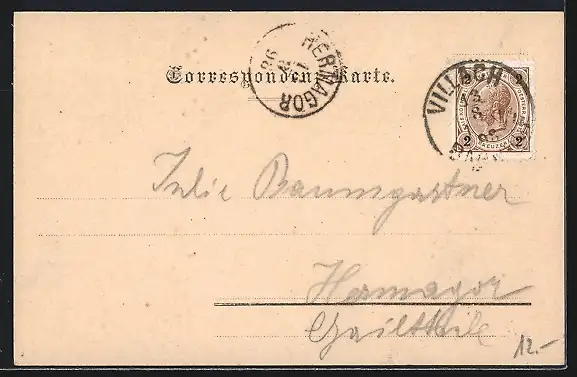 Correspondenz-Karte.
HERMAGOR
98
VILLACH
2 2
KREUZER
Julie Baumgartner
Hermagor
Gailthale
12.-